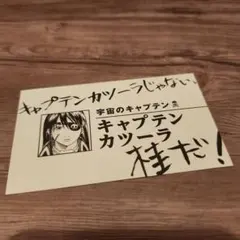 キャプテンカツーラじゃない
宇宙のキャプテン
キャプテン
カツーラ
桂だ!